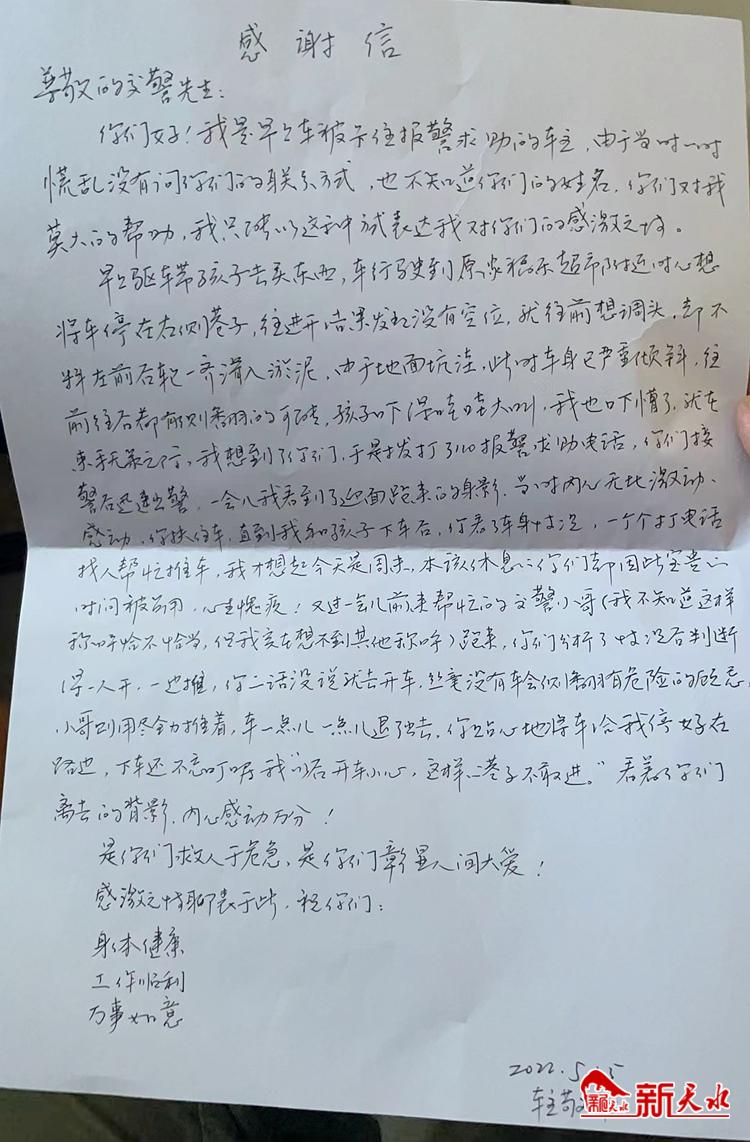 感谢信
尊敬的交警先生：
你们好！我是早上车被卡住报警求助的车主，由于当时一时
慌乱没有问你们的联系方式，也不知道你们的姓名，你们对我
莫大的帮助，我只能以这种方式表达我对你们的感激之情。
早上驱车带孩子去买东西，车行驶到原家福乐超市附近时心想
将车停在右侧巷子，往进开结果发现没有空位，就往前想调头，却不
料左前后轮一齐滑入淤泥，由于地面坑洼，此时车身已严重倾斜，往
前往后都有侧翻的可能，孩子吓得哇哇大叫，我也吓懵了，就在
束手无策之际，我想到了你们，于是拨打了110报警求助电话，你们接
警后迅速出警，一会儿我看到了迎面跑来的身影，当时内心无比激动、
感动，你扶住车，直到我和孩子下车后，你看了车身情况，一个个打电话
找人帮忙推车，我才想起今天是周末，本该休息的你们却因此宝贵的
时间被占用，心生愧疚！又过一会儿前来帮忙的交警小哥（我不知道这样
称呼恰不恰当，但我实在想不到其他称呼）跑来，你们分析了情况后判断
得一人开，一边推，你二话没说就去开车，丝毫没有车会侧翻有危险的顾忌，
小哥则用尽全力推着，车一点儿一点儿退出去，你贴心地将车给我停好在
路边，下车还不忘叮咛我"以后开车小心，这样的巷子不敢进。"看着你们
离去的背影，内心感动万分！
是你们救人于危急，是你们彰显人间大爱！
感激之情聊表于此，祝你们：
身体健康
工作顺利
万事如意
2022.5.5
车主敬
新天水